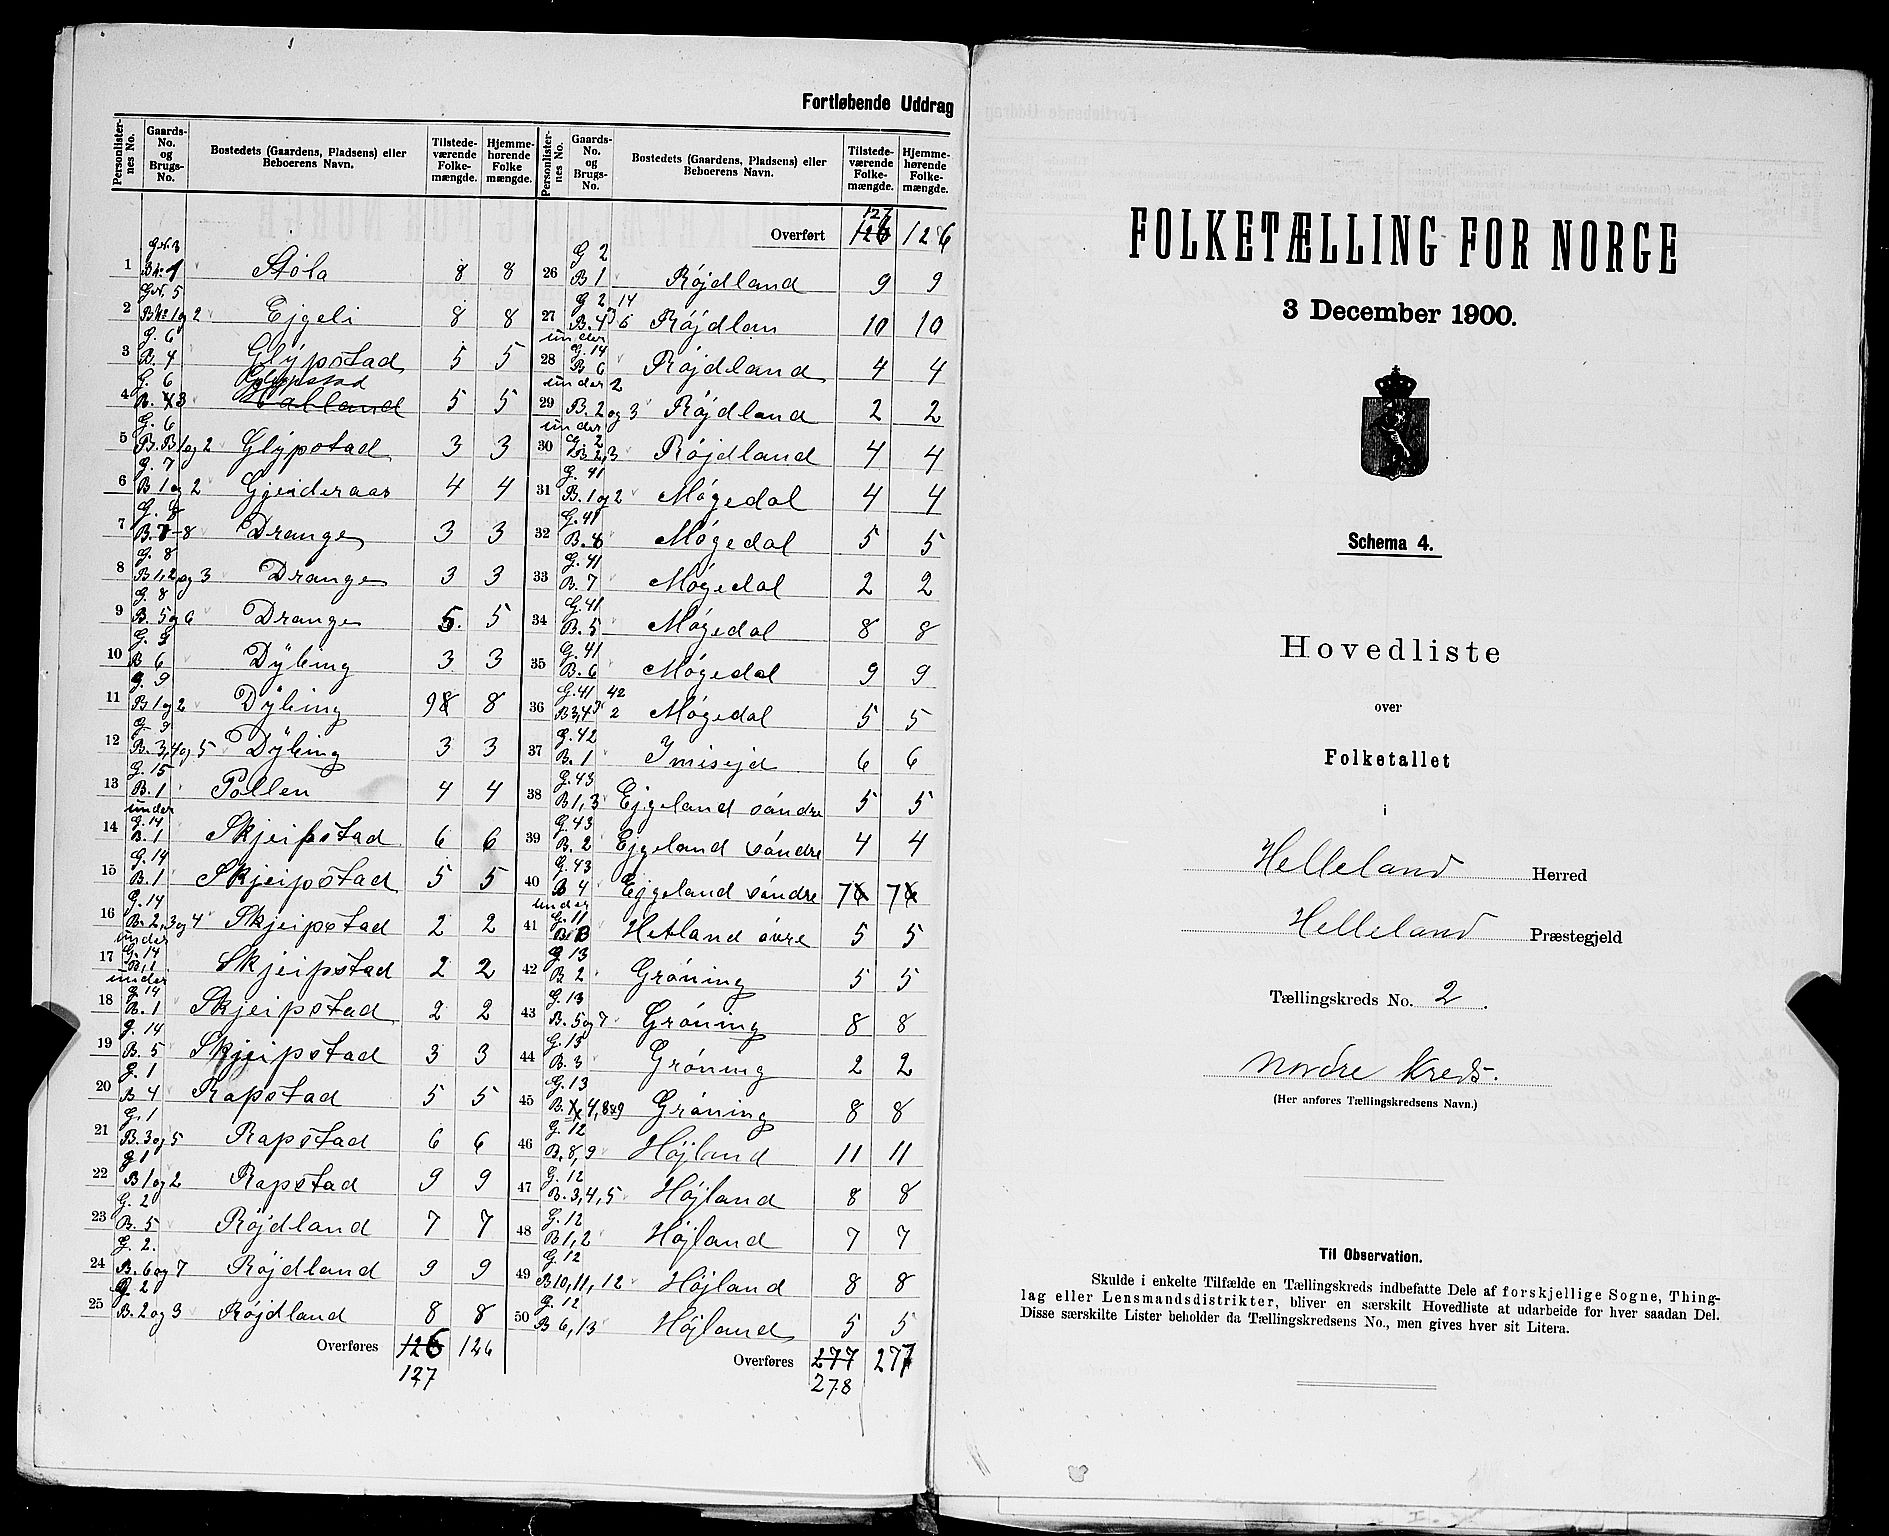 Fortløbende Uddrag
Personlisternes No. | Gaards-No. og Brugs-No. | Bostedets (Gaardens, Pladsens) eller Beboerens Navn. | Tilstedeværende Folkemængde. | Hjemmehørende Folkemængde.
1 | G№ 3 B№ 1 | Støla | 8 | 8
2 | G№ 5 B№ 1 og 2 | Ejgeli | 8 | 8
3 | G. 6 B. 4 | Glÿpstad | 5 | 5
4 | G. 6 B. 3 | Glypstad | 5 | 5
5 | G. 6 B. B 1 og 2 | Glÿpstad | 3 | 3
6 | G. 7 B 1 og 2 | Gjenderaas | 4 | 4
7 | G. 8 B. 7-8 | Drange | 3 | 3
8 | G. 8 B 1, 2 og 3 | Drange | 3 | 3
9 | G. 8 B. 5 og 6 | Drange | 5. | 5
10 | G. 9 B 6 | Dÿbing | 3 | 3
11 | G. 9 B 1 og 2 | Dÿbing | 9 8 | 8
12 | G 9 B. 3, 4 og 5 | Dÿbing | 3 | 3
13 | G. 15 B. 1 | Pollen | 4 | 4
14 | under G. 14 B. 1 | Skjeipstad | 6 | 6
15 | G. 14 B. 1 | Skjeipstad | 5 | 5
16 | G. 14 B. 2, 3 og 4 | Skjeipstad | 2 | 2
17 | under G. 14 B. 1 | Skjeipstad | 2 | 2
18 | under G. 14 B. 1 | Skjeipstad | 2 | 2
19 | G. 14 B. 5 | Skjeipstad | 3 | 3
20 | G. 1 B 4 | Rapstad | 5 | 5
21 | G. 1 B. 3 og 5 | Rapstad | 6 | 6
22 | G 1 B 1 og 2 | Rapstad | 9 | 9
23 | G. 2 B. 5 | Røjdland | 7 | 7
24 | G. 2. B. 6 og 7 | Røjdland | 9 | 9
25 | G 2 B. 2 og 3 | Røjdland | 8 | 8
Overføres | 126 | 126
127
Personlisternes No. | Gaards-No. og Brugs-No. | Bostedets (Gaardens, Pladsens) eller Beboerens Navn. | Tilstedeværende Folkemængde. | Hjemmehørende Folkemængde.
127
Overført | 126 | 126
26 | G 2 B 1 | Røjdland | 9 | 9
27 | G 2 14 B. 4 6 | Røjdlan | 10 | 10
28 | under G. 14 B 6 | Røjdland | 4 | 4
29 | under 2 B. 2 og 3 | Røjdland | 2 | 2
30 | under G. 2 B 2, 3 | Røjdland | 4 | 4
31 | G. 41 B. 1 og 2 | Møgedal | 4 | 4
32 | G. 41 B. | Møgedal | 5 | 5
33 | G. 41 B. 7 | Møgedal | 2 | 2
34 | G. 41 B. 5 | Møgedal | 8 | 8
35 | G. 41 B. 6 | Møgedal | 9 | 9
36 | G. 41 42 B 3, 4 2 | Møgedal | 5 | 5
37 | G. 42 B. 1 | Imisejd | 6 | 6
38 | G. 43 B 1, 3 | Ejgeland søndre | 5 | 5
39 | G. 43 B. 2 | Ejgeland søndre | 4 | 4
40 | G. 43 B 4 | Ejgeland søndre | 7 | 7
41 | under G. 11 B. | Hetland øvre | 5 | 5
42 | G 13 B 2 | Grøning | 5 | 5
43 | G. 13 B. 5 og 7 | Grøning | 8 | 8
44 | G. 13 B. 3 | Grøning | 2 | 2
45 | G. 13 B. 4, 8 & 9 | Grøning | 8 | 8
46 | G. 12 B. 8, 9 | Højland | 11 | 11
47 | G. 12 B. 3, 4, 5 | Højland | 8 | 8
48 | G. 12 B 1, 2 | Højland | 7 | 7
49 | G. 12 B 10, 11, 12 | Højland | 8 | 8
50 | G. 12 B 6, 13 | Højland | 5 | 5
Overføres | 277 | 277
278
FOLKETÆLLING FOR NORGE
3 December 1900.
Schema 4.
Hovedliste
over
Folketallet
i
Helleland Herred
Helleland Præstegjeld
Tællingskreds No. 2.
Nordre Kreds.
(Her anføres Tællingskredsens Navn.)
Til Observation.
Skulde i enkelte Tilfælde en Tællingskreds indbefatte Dele af forskjellige Sogne, Thing-
lag eller Lensmandsdistrikter, bliver en særskilt Hovedliste at udarbeide for hver saadan Del.
Disse særskilte Lister beholder da Tællingskredsens No., men gives hver sit Litera.